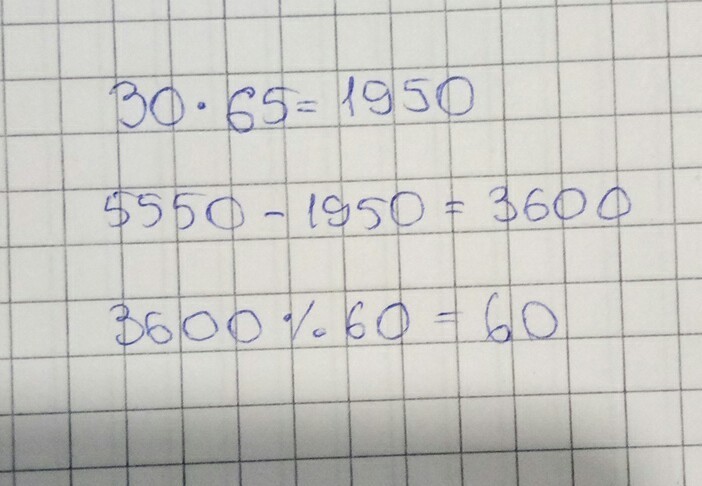 30 · 65 = 1950
5550 - 1950 = 3600
3600 % 60 = 60